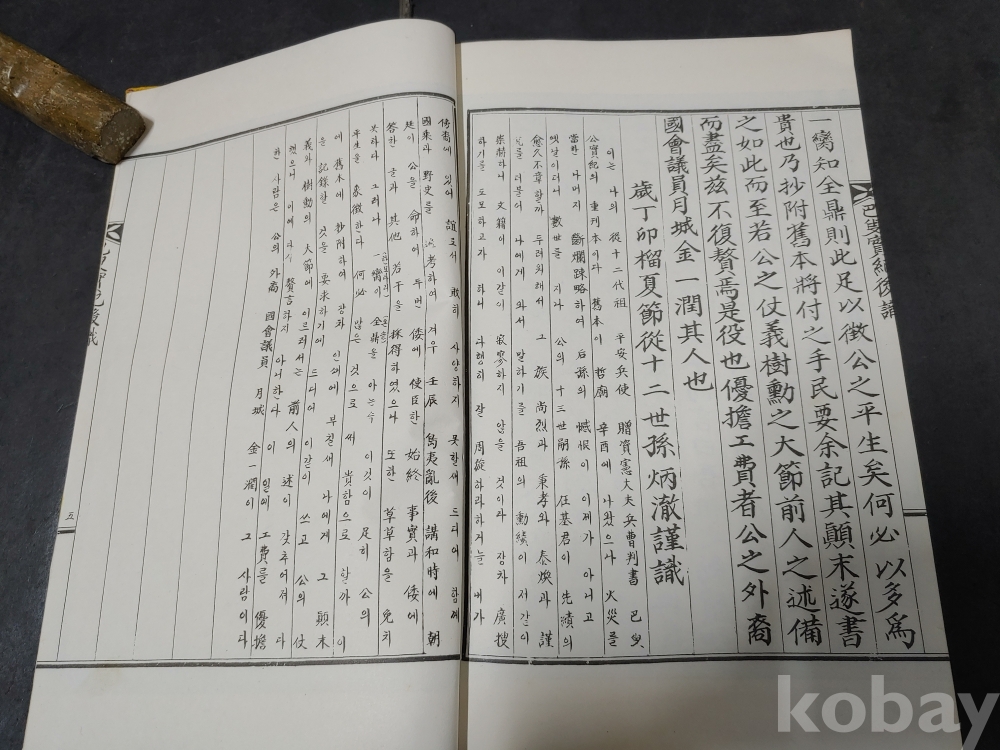 一臠知全鼎則此足以徵公之平生矣何必以多爲
貴也乃抄附舊本將付之手民要余記其顚末遂書
之如此而至若公之仗義樹勳之大節前人之述備
而盡矣玆不復贅焉是役也優擔工費者公之外裔
國會議員月城金一潤其人也
歲丁卯榴夏節從十二世孫炳澈謹識
이는 나의 從十二代祖 平安兵使 贈資憲大夫兵曹判書 巴叟
公實紀의 重刊本이다 舊本이 哲廟 辛酉에 나왔으나 火災를
當한 나머지 斷爛踈略하여 後孫의 憾恨이 이제가 아니고
옛날이더니 數世를 지나 公의 十三世嗣孫 任基君이 先蹟의
愈久不章할까 두려워해서 그 族 尚烈과 秉孝와 泰煥과 謹
兄을 더불어 나에게 와서 말하기를 吾祖의 勳績이 저같이
崇赫하나 文籍이 이같이 寂寥하지 않을 것이라 장차 廣搜
하기를 도모하고자 하니 다행히 잘 周旋하라하거늘 내가
傍裔에 있어 誼로서 敢히 사양하지 못할새 드디어 함께
國乘과 野史를 考하여 겨우 壬辰 島夷亂後 講和時에 朝
廷이 公을 命하여 두번 倭에 使臣한 始終 事實과 倭에
答한 글과 其他 若干을 採得하였으나 또한 草草함을 免치
못하다 그러나 一臠이 全鼎을 아는즉 이것이 足히 公의
平生을 象徵한다 何必 많은 것으로 써 貴함으로 할까 이
에 舊本에 抄附하여 장차 인쇄에 부칠새 나에게 그 顚末
을 記錄할 것을 要求하기에 드디어 이같이 쓰고 公의 仗
義와 樹勳의 大節에 이르러서는 前人의 述이 갖추어져 다
했으니 이에 다시 贅言하지 아니하다 이 일에 工費를 優擔
한 사람은 公의 外裔 國會議員 月城 金一潤이 그 사람이다
五
kobay